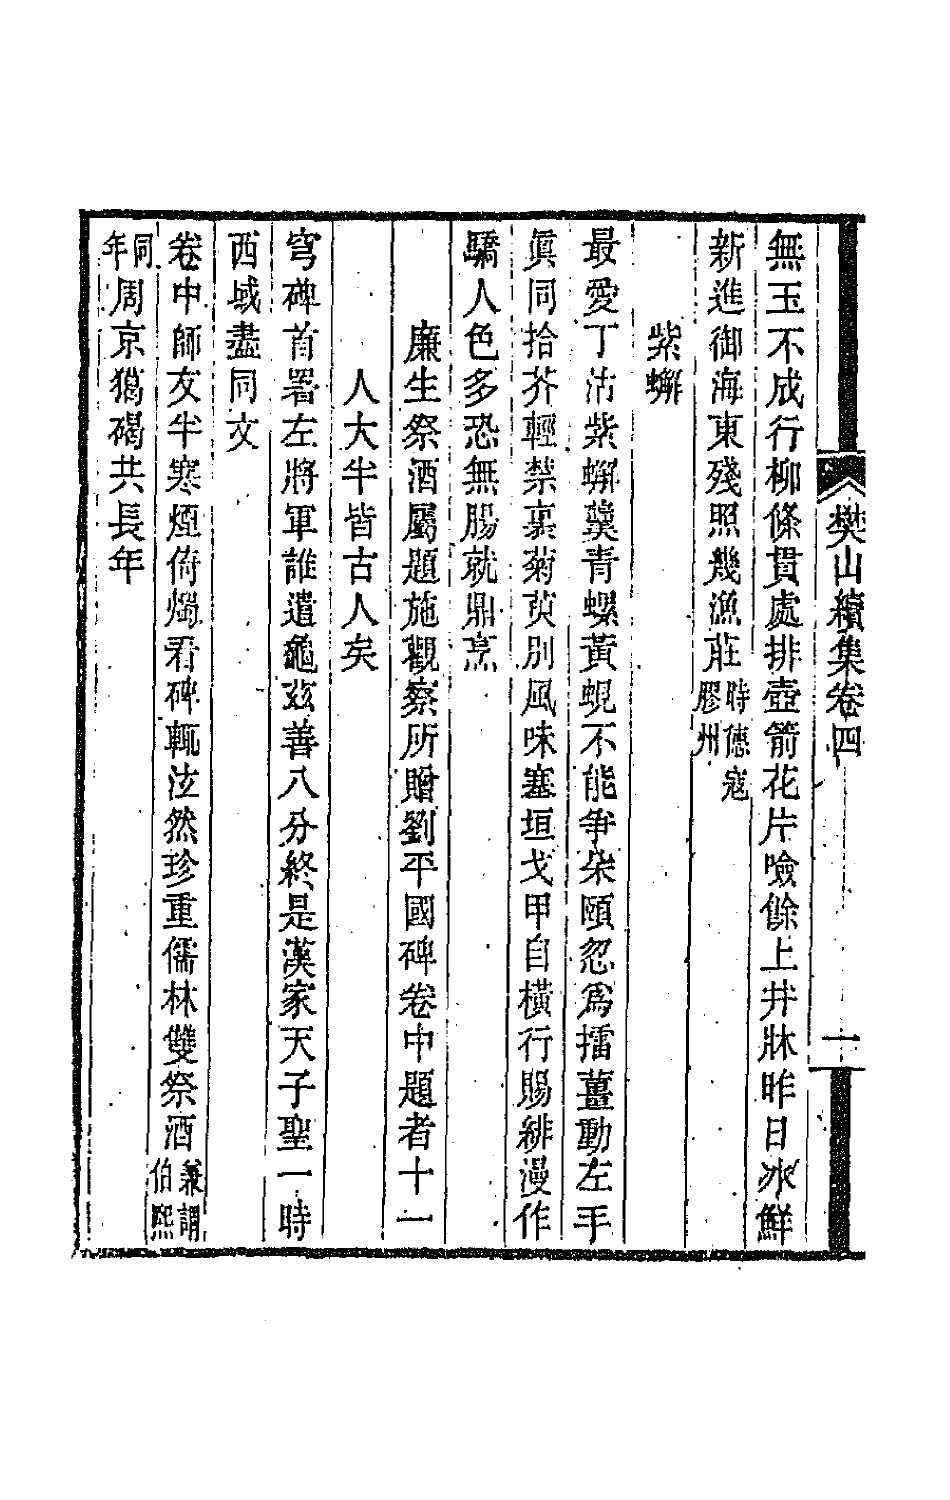 樊山續集卷四 一
無玉不成行柳條貫處排壺箭花片噞餘上井牀昨日冰鮮
新進御海東殘照幾漁莊時德寇膠州
紫蠏
最愛丁沽紫蠏羹青螺黃蜆不能爭朵頤忽爲擂薑動左手
眞同拾芥輕禁裹菊萸別風味塞垣戈甲自橫行賜緋漫作
驕人色多恐無腸就鼎烹
廉生祭酒屬題施觀察所贈劉平國碑卷中題者十一
人大半皆古人矣
穹碑首署左將軍誰遣龜茲善八分終是漢家天子聖一時
西域盡同文
卷中師友半寒煙俯燭看碑輒泫然珍重儒林雙祭酒兼謂伯熙
同年周京獵碣共長年